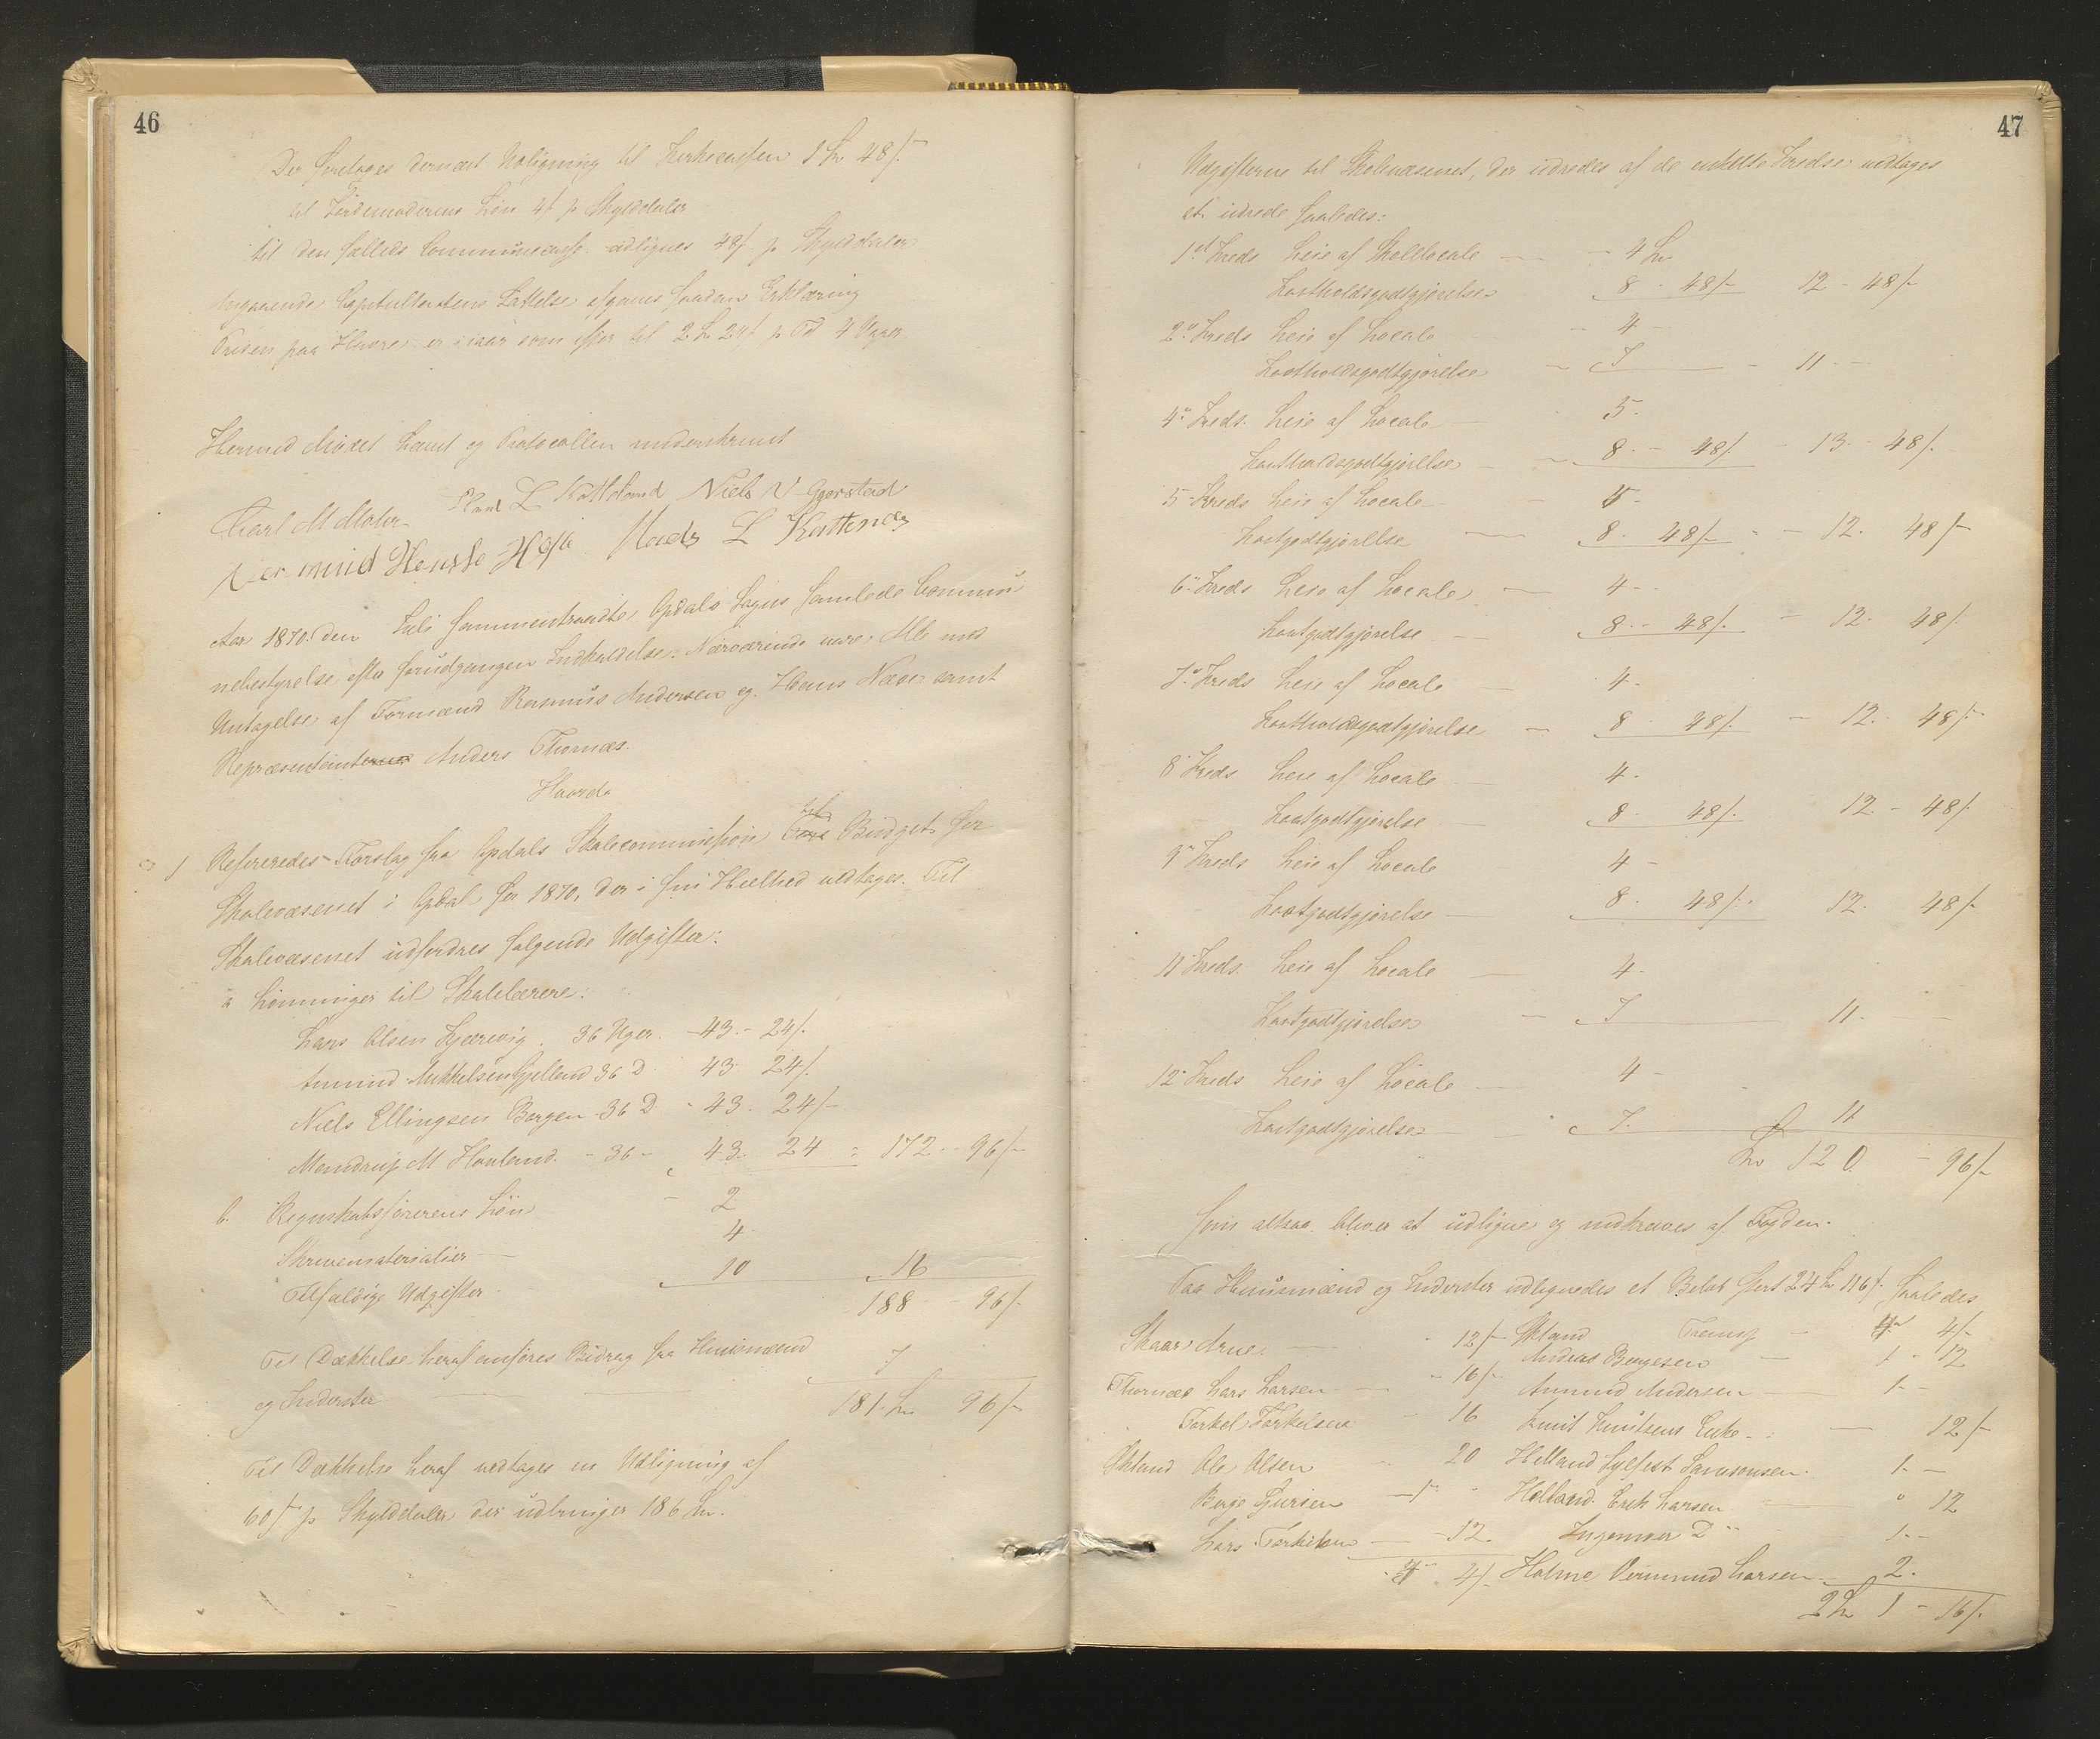 46
Der foretages dernæst Udligning til Kirkecassen 1 Sp 48 /-
til Jordemoderens Løn 4 /- p Skylddaler
til den fælleds Communecasse udlignes 48 /- p Skylddaler
Angaaende Capitultaxtens Sættelse afgaves saadan Erklæring
Prisen paa Havre er i aar som ifjor til 2 Sp 24 /- p Td 4 Vaager
Hermed Mødet hævet og Protocollen underskrevet
Carl M Mohr L Katteland Niels N Gjerstad
Vermund Mads L Kattenes
Aar 1870 den Juli sammentraadte Opdals Sogns samlede Commu
nebestyrelse efter forudgangen Indkaldelse. Nærværende vare: Alle med
Undtagelse af Formænd Rasmus Andersen og Hans Næse samt
Repræsentanterne Anders Thornæs.
Hvorda
1 Refereredes Forslag fra Opdals Skolecommission til Budget for
Skolevæsenet i Opdal for 1870, der i sin Heelhed vedtages. Til
Skolevæsenet udfordres følgende Udgifter:
a Lønninger til Skolelærere:
Lars Olsen Kjærevig. 36 Uger. - 43 - 24 /-
Amund Mikkelsen Gjelland 36 D 43 24 /-
Niels Ellingsen Bergen - 36 D - 43. 24 /-
Mandrup M Havland. - 36 - 43. 24 = 172 - 96 /-
b. Regnskabsførerens Løn - 2
Skrivematerialier - 4 -
Tilfældige Udgifter - 10 16
188 96 /-
Til Dækkelse heraf anføres Bidrag fra Huusmænd
og Inderster 7
181 Sp 96 /-
Til Dækkelse heraf vedtages en Udligning af
60 /- p Skylddaler, der udbringer 186 Sp.
47
Udgifterne til Skolevæsenet, der udredes af de enkelte Kredse vedtages
at udrede saaledes:
1st Kreds Leie af Skollocale - 4 Sp
Kostholdsgodtgjørelse 8 - 48 /- 12 - 48 /-
2 Kreds Leie af Locale - 4 -
Kostholdsgodtgjørelse - 7 - 11 -
4 Kreds. Leie af Locale 5 -
Kostholdsgodtgjørelse 8 - 48 /- 13 - 48 /-
5 Kreds Leie af Locale - 4 -
Kostgodtgjørelse 8 - 48 /- - 12. 48 /-
6 Kreds Leie af Locale 4 -
Kostgodtgjørelse 8 - 48 /- - 12. 48 /-
7 Kreds Leie af Locale 4 -
Kostholdsgodtgjørelse 8 - 48 /- - 12 - 48 /-
8 Kreds Leie af Locale 4 -
Kostgodtgjørelse 8 - 48 /- 12 - 48 /-
9 Kreds Leie af Locale 4 -
Kostgodtgjørelse 8 - 48 /- 12. 48 /-
11 Kreds Leie af Locale 4 -
Kostgodtgjørelse - 7 11 -
12 Kreds Leie af Locale 4 -
Kostgodtgjørelse 7. 11
Sp 120 - 96 /-
som altsaa bliver at udligne og inddrives af Fogden.
Paa Huusmænd og Inderster udlignedes et Beløb stort 24 Sp 116 /- saaledes
Skaar Arne. - 12 /-
Thornæs Lars Larsen - 16 /-
Torkel Torkelsen - 16
Økland Ole Olsen 20
Berje Sjursen - 1 -
Lars Torkelsen - 12.
4 /-
Økland Transp - 4 /-
Anders Bergesen - 1 - 12
Amund Andersen - 1 -
Knut Knutsens Enke - 12 /-
Helland Sylfest Samsonsen. 1 -
Helland. Erik Larsen " 12
Ingemoer D " 1 -
Holme Vermund Larsen 2 -
2 Sp 1 - 16 /-